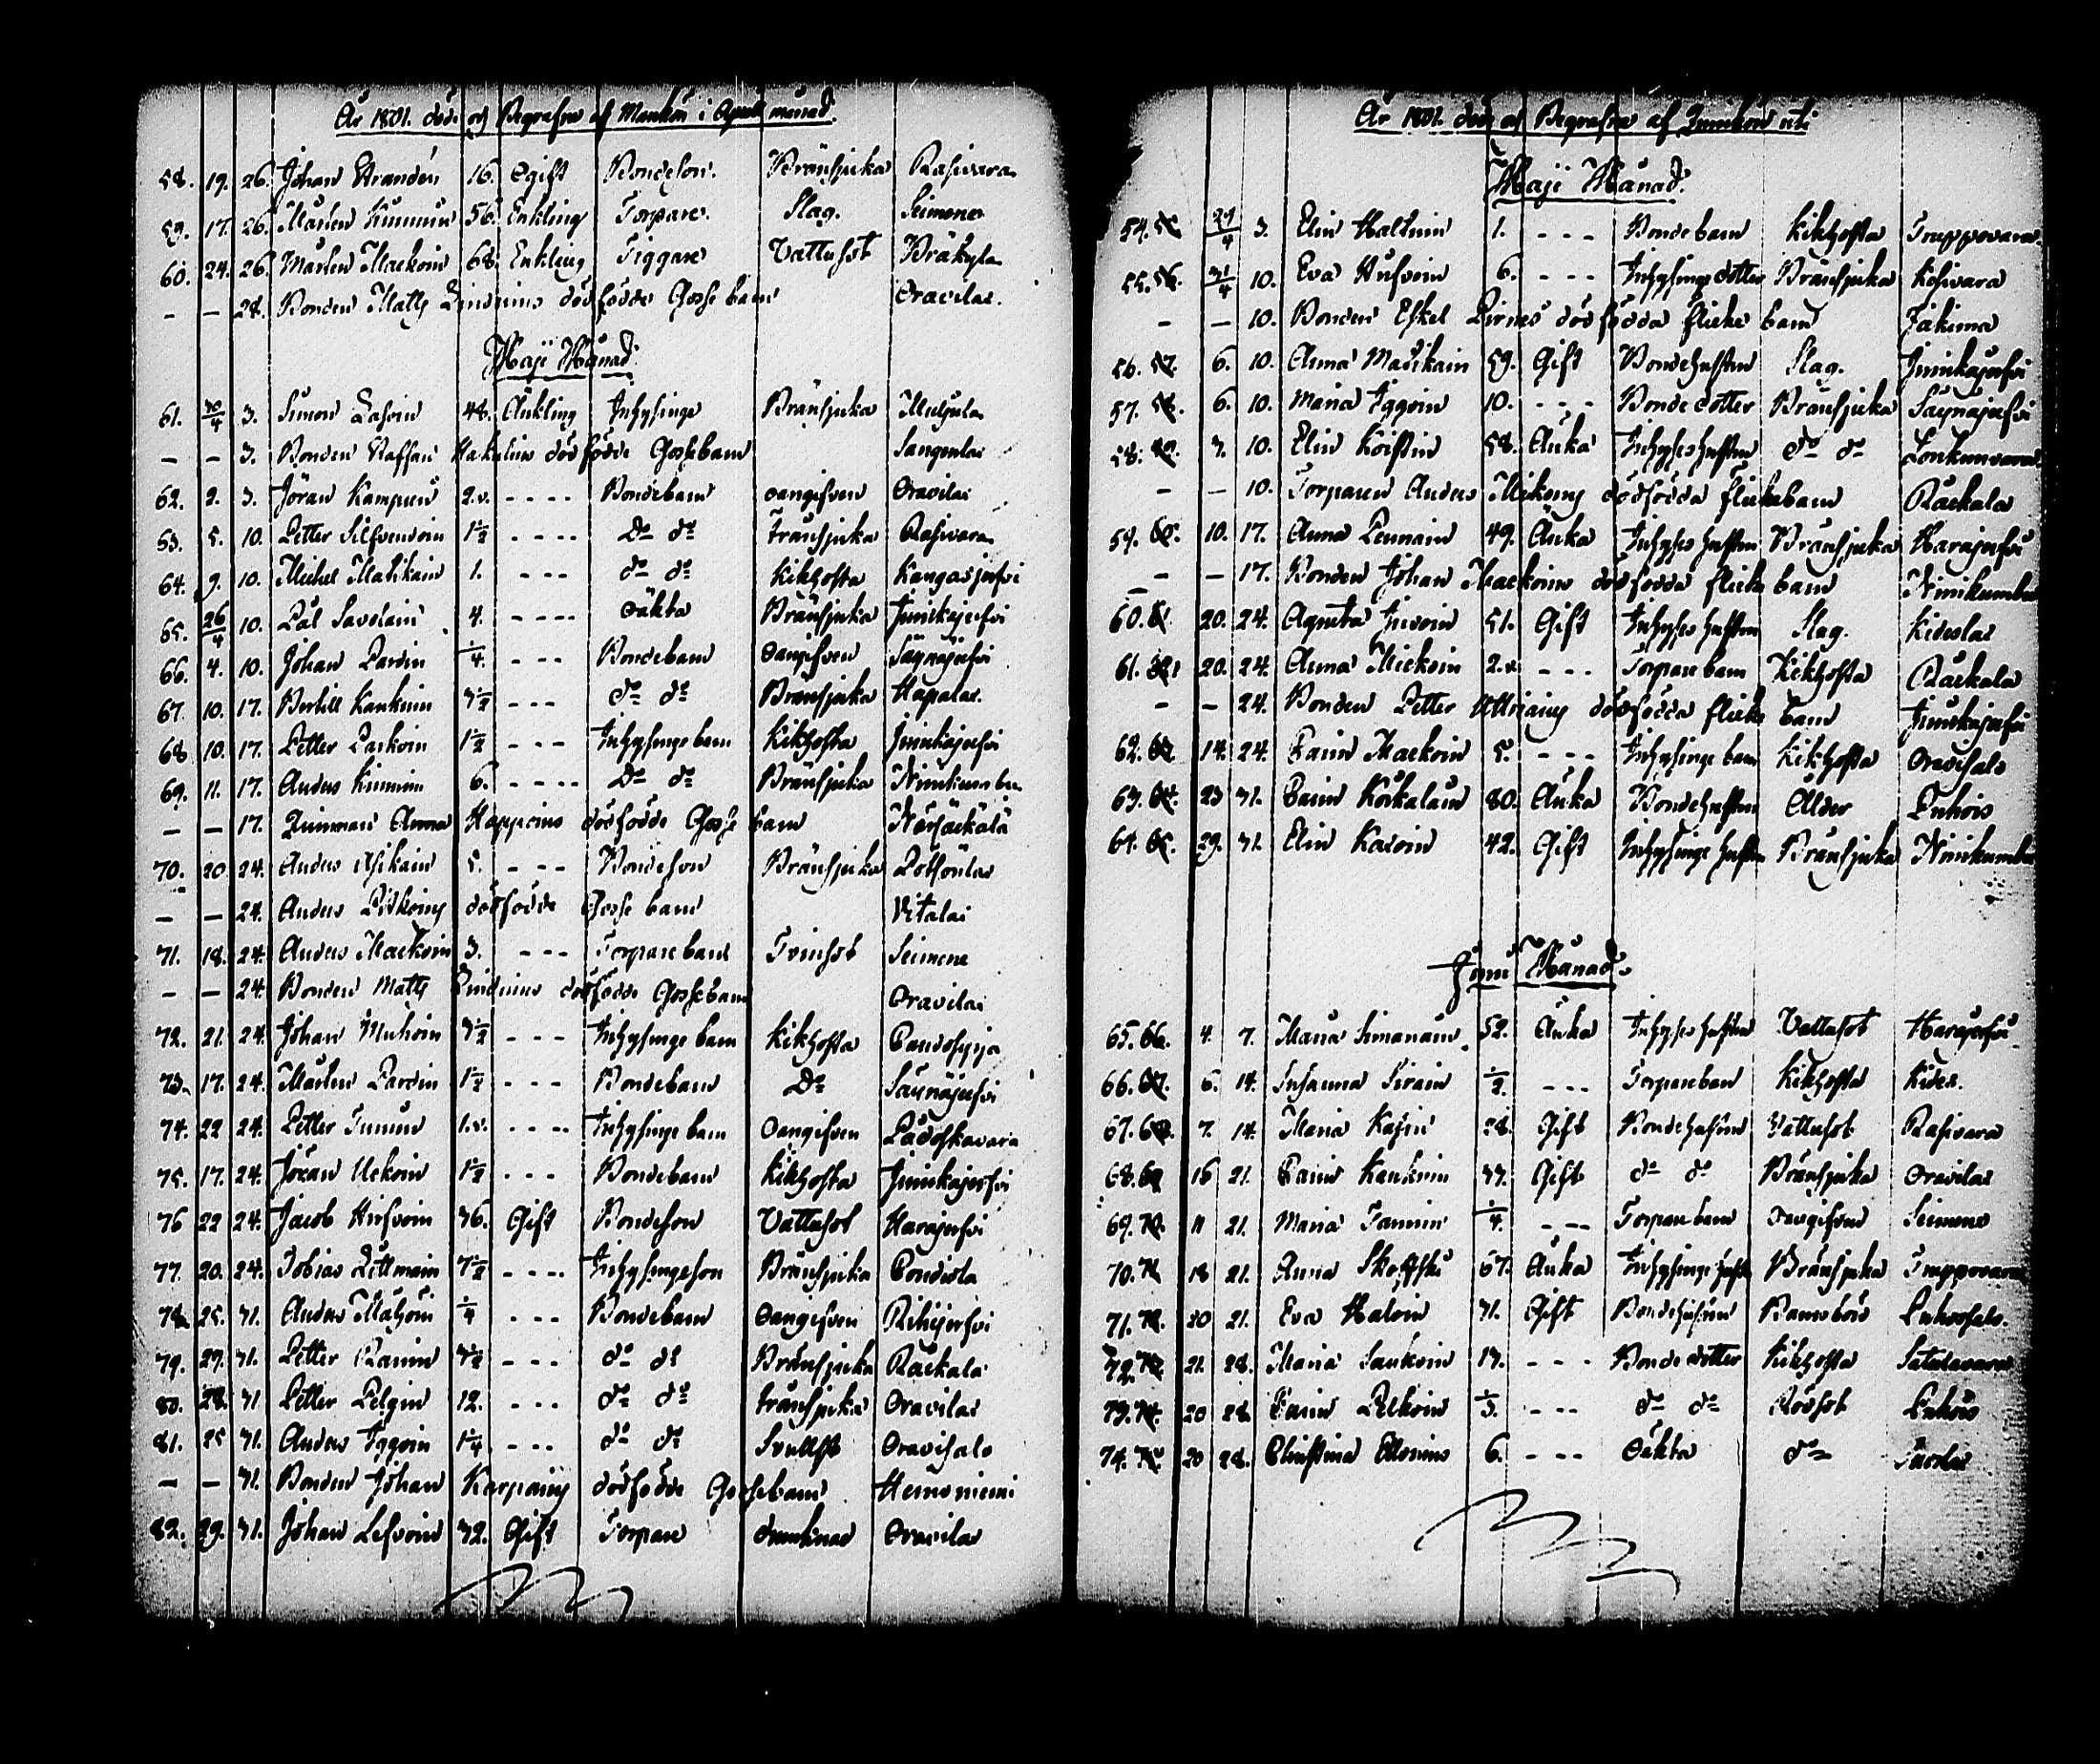 År 1801. döde och Begrafne af Mankön i April månad.
58. 19. 26. Johan Strandén 16. Ogift Bondeson. Bränsjuka Rasivara
59. 17. 26. Mårten Kinnuin 56. Enkling Torpare. Slag. Seimene
60. 24. 26. Mårten Maekoin 68. Enkling Tiggare Vattusot Kräkylä
— — 28. Bonden Matts dödfödde Gosse barn Oravilax.
Maji Månad.
61. 30/4 3. Simon Lasoin 48. Ankling Inhysinge Bränsjuka
— — 3. Bonden Staffan Hakulins dödfödde Gossebarn Sangenlax
62. 2. 3. Jöran Kampuin 2.v. - - - - Bondebarn oangifven Oravilax
63. 5. 10. Petter Silfvendoin 1 1/2 - - - - Do do Bränsjuka Rasivara
64. 9. 10. Michel Matikain 1. - - - do do Kikhosta Kangasjerfvi
65. 26/4 10. Pål Savolain 4. - - - - oäkta Bränsjuka Jouikajerfvi
66. 4. 10. Johan Pardin 1/4. - - - Bondebarn Oangifven Säynäjerfvi
67. 10. 17. Bertill Kankuin 3 1/2 - - - do do Bränsjuka Hapalax.
68 10. 17. Petter Paskoin 1 1/2 - - - Inhysinge barn Kikhosta Jouikajerfvi
69. 11. 17. Anders Kinnuin 6. - - - - Do do Bränsjuka Niinikumbu
— — 17. Quinnan Anna Happoins dödfödde Gosse barn
70. 20 24. Anders Asikain 5. - - - Bondeson Bränsjuka Potsönlax
— — 24. Anders Pitkoins dödfödde Gosse barn Vitalax
71. 18. 24. Anders Maekoin 3. - - - Torpare barn Tvinsot Seimene
— — 24. Bonden Matts dödfödde Gossebarn Oravilax
72. 21. 24. Johan Muhoin 3 1/2 - - - Inhysinge barn Kikhosta
73. 17. 24. Mårten Pardin 1 1/2 - - - Bondebarn Do Säynäjerfvi
74. 22 24. Petter 1.v. - - - - Inhysinge barn Oangifven Pådoskavara
75. 17. 24. Jöran Uckoin 1 1/2 - - - Bondebarn Kikhosta Jouikajerfvi
76 22 24. Jacob Hirfvoin 36. Gift Bondeson Vattusot Harajerfvi
77. 20. 24. Tobias 7 1/2 - - - - Inhysingeson Bränsjuka
78. 25. 31. Anders 1/4 - - - Bondebarn Oangifven Rihijerfvi
79. 27. 31. Petter 3 1/2 - - - do do Bränsjuka Räckälä
80. 28. 31 Petter 12. - - - do do Bränsjuka Oravilax
81. 25 31. Anders Iggoin 1 1/4 - - - do do Oravisalo
— — 31. Bonden Johan Karpains dödfödde Gossebarn Heinoniemi
82. 29. 31. Johan 32. Gift Torpare drunknad Oravilax
År 1801. döde och Begrafne af Quinkön uti
Maji Månad.
54. 27/4 3. Elin Haltuin 1. - - - Bonde barn Kikhosta Truppovara.
55. 56. 31/4 10. Eva Hirfvoin 6. - - - Inhysinge dotter Bränsjuka Kosivara
— — 10. Bonden Eskel Pirnes dödfödda flicke barn Jakima
56. 57. 6. 10. Anna Matikain 59. Gift Bondehustru Slag. Jouikajerfvi
57. 58. 6. 10. Maria Iggoin 10. - - - Bonde dotter Bränsjuka Säynäjerfvi
58. 59. 7. 10. Elin Koistin 58. Änka Inhyses hustru do do Lonkunvara
— — 10. Torparen Anders Mikoins dödfödda flickebarn Räckälä
59. 60. 10. 17. Anna Pennain 49. Änka Inhyses hustru Bränsjuka Harajerfvi
— — 17. Bonden Johan Maekoins dödfödda flicke barn Niinikumbu
60. 61. 20. 24. Agneta 51. Gift Inhyses hustru Slag. Kideslax
61. 62. 20. 24. Anna Mickoin 2.v. - - - Torpare barn Kikhosta Räckälä
— — 24. Bonden Petter Uttriains dödfödda flicke barn Jouikajerfvi
62. 63. 14. 24. Carin Maekoin 5. - - - Inhysinge barn Kikhosta Oravisalo
63. 64. 23 31. Carin Korkalain 80. Änka Bondehustru Ålder Puhois
64. 65. 29. 31. Elin Karoin 42. Gift Inhysinge hustru Bränsjuka Niinikumbu
Junii Månad.
65. 66. 4. 7. Maria Simanain 52. Änka Inhyses hustru Vattusot Harajerfvi
66. 67. 6. 14. Susanna Sirain 1/2. - - - Torpare barn Kikhosta Kides.
67. 68. 7. 14. Maria Kajin 28. Gift Bondehustru Vattusot Rasivara
68. 69 16 21. Carin Kankuin 37. Gift do do Bränsjuka Oravilax
69. 70. 11 21. Maria Tannin 1/4. - - - Torpare barn Oangifven Seimene
70. 71 18 21. Anna 67. Änka Inhysinge hustru Bränsjuka Truppovara
71. 72. 20 21. Eva Haloin 31. Gift Bondehustru Barnsbörd Puhossalo.
72. 73. 21. 28. Maria Saukoin 13. - - - Bonde dotter Kikhosta Satulavara
73. 74. 20 28. Carin Pelkoin 1/3. - - - do do Rödsot Puhois
74. 75. 20 28. Christina 6. - - - Oäkta do